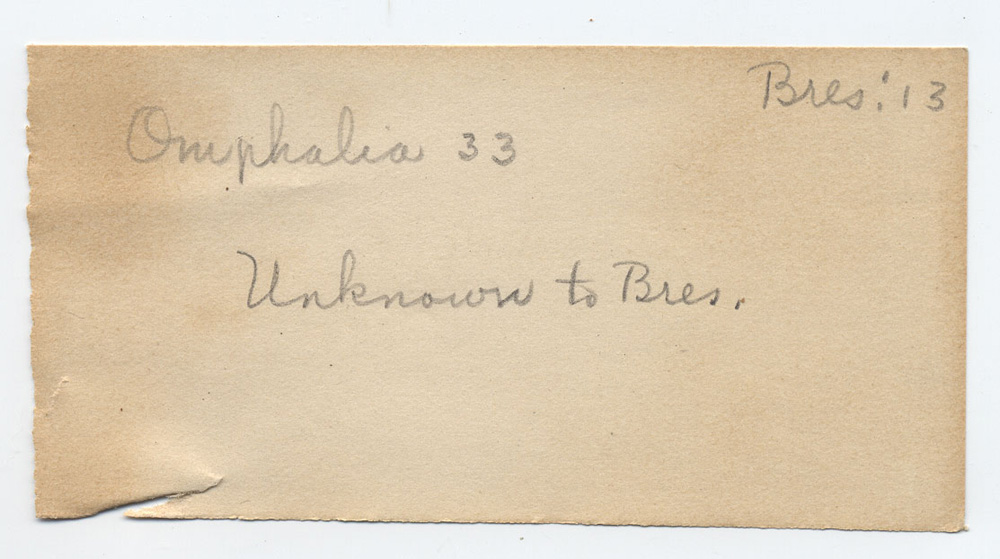 Bres. '13
Omphalia 33
Unknown to Bres.